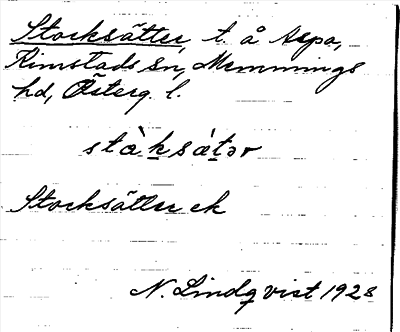 Stocksätter, t. å Aspa,
Rimstads sn, Memmings
hd, Österg. l.
stàksátər
Stocksätter ek
N. Lindqvist 1928